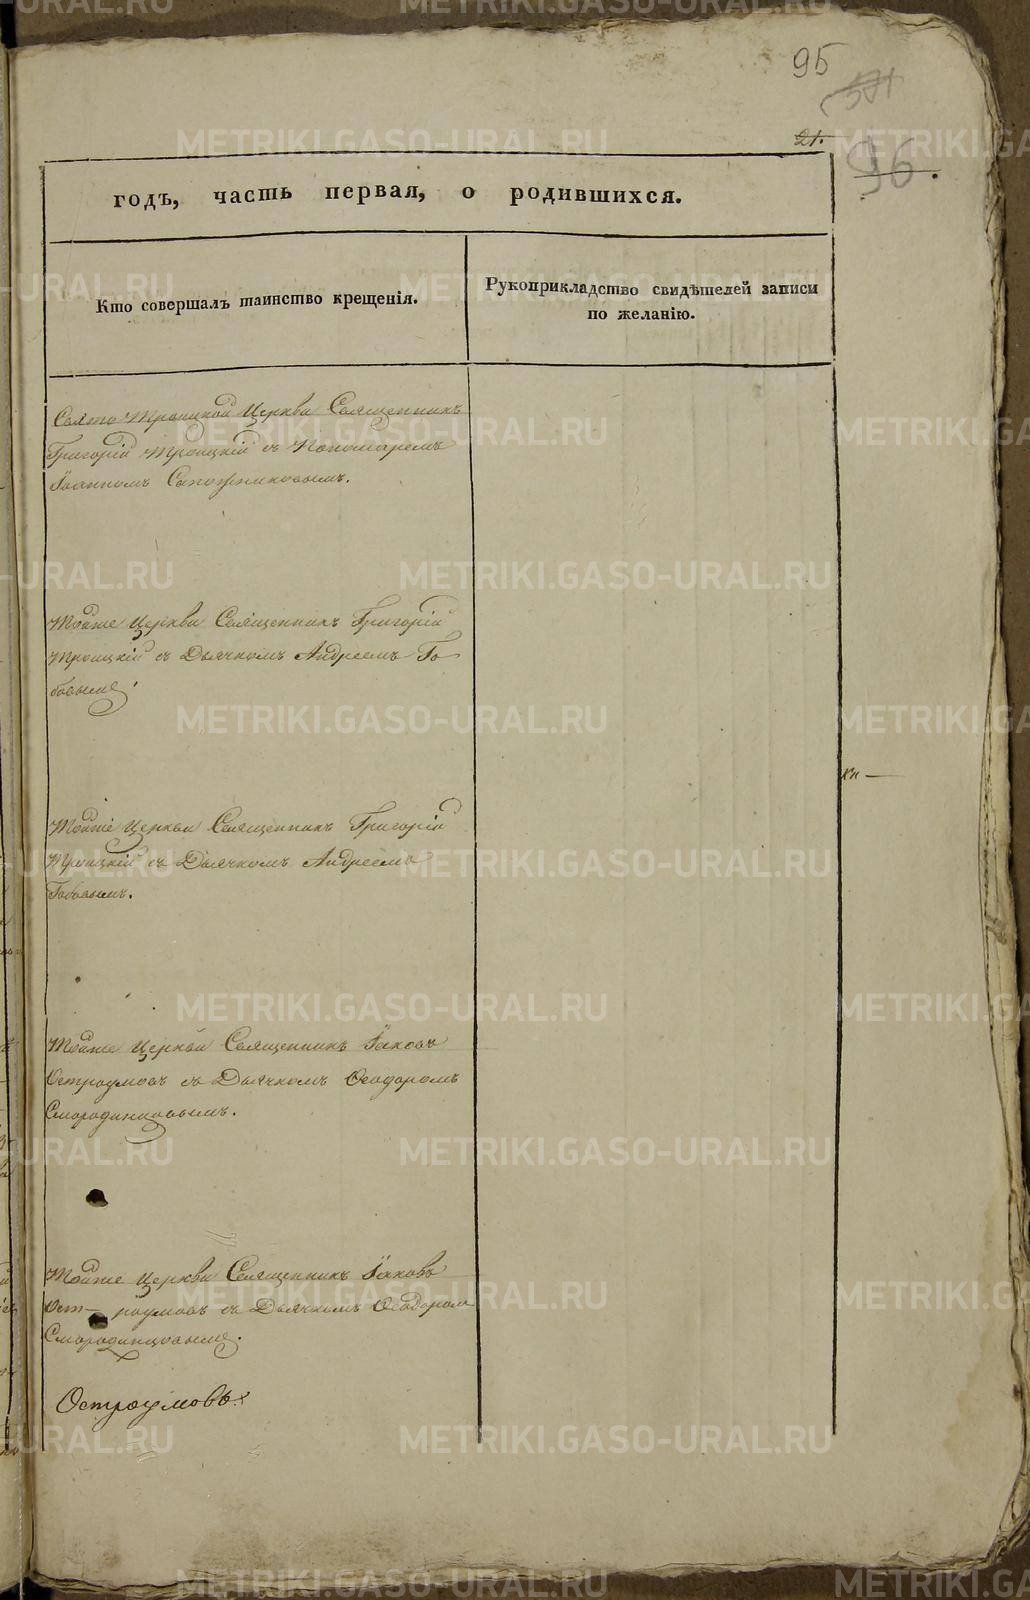 95
21.
96.
годъ, часть первая, о родившихся.
Кто совершалъ таинство крещенія.
Рукоприкладство свидѣтелей записи
по желанію.
Свято Троицкой Церкви Священникъ
Григорій Троицкій съ Пономаремъ
Іоанномъ Сапожниковымъ.
Тойже Церкви Священникъ Григорій
Троицкій съ Дьячкомъ Андреемъ Го
бовымъ.
Тойже Церкви Священникъ Григорій
Троицкій съ Дьячкомъ Андреемъ
Гобовымъ.
Тойже Церкви Священникъ Іаковъ
Остроумовъ съ Дьячкомъ Ѳеодоромъ
Смородинцовымъ.
Тойже Церкви Священникъ Іаковъ
Остроумовъ съ Дьячкомъ Ѳеодоромъ
Смородинцовымъ.
Остроумовъ.
METRIKI.GASO-URAL.RU